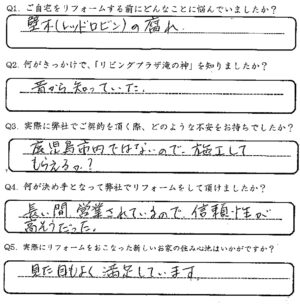 Q1. ご自宅をリフォームする前にどんなことに悩んでいましたか?
壁木(レッドロビン)の腐れ
Q2. 何がきっかけで、「リビングプラザ滝の神」を知りましたか?
昔から知っていた。
Q3. 実際に弊社でご契約を頂く際、どのような不安をお持ちでしたか?
鹿児島市内ではないので、施工して
もらえるか?
Q4. 何が決め手となって弊社でリフォームをして頂けましたか?
長い間営業されているので、信頼性が
高そうだった。
Q5. 実際にリフォームをおこなった新しいお家の住み心地はいかがですか?
見た目もよく満足しています。